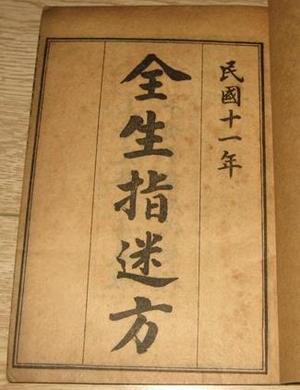 民國十一年
全生指迷方